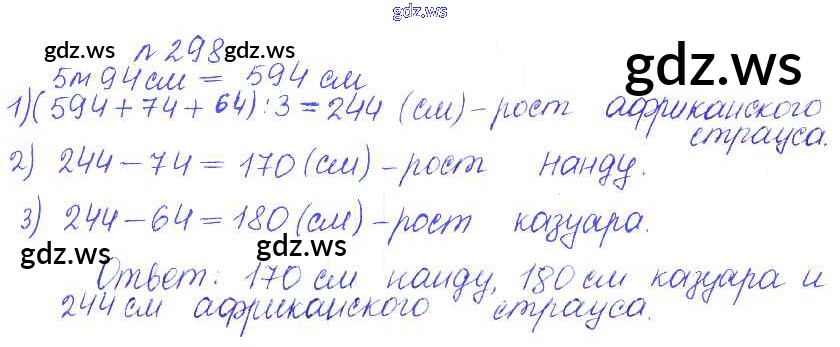 gdz.ws
gdz.ws № 298 gdz.ws
5м 94 см = 594 см
gdz.ws
1) (594 + 74 + 64) : 3 = 244 (см) – рост африканского
страуса.
2) 244 – 74 = 170 (см) – рост нанду.
3) 244 – 64 = 180 (см) – рост казуара.
gdz.ws gdz.ws
Ответ: 170 см нанду, 180 см казуара и
244 см африканского страуса.